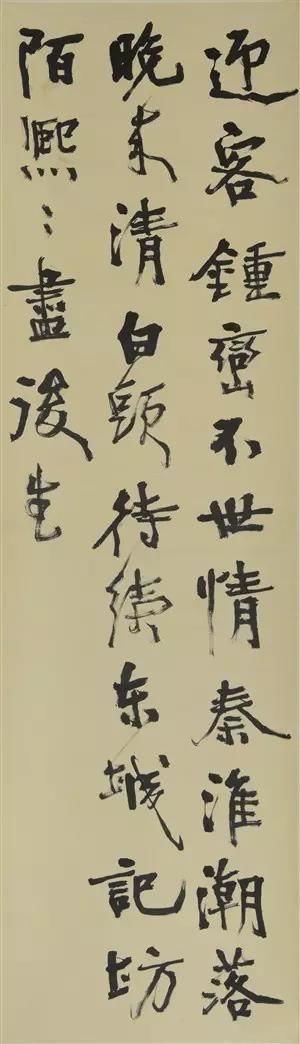 迎客鍾巒不世情秦淮潮落
晚来清白頭待續东城記坊
陌熙〻盡後生